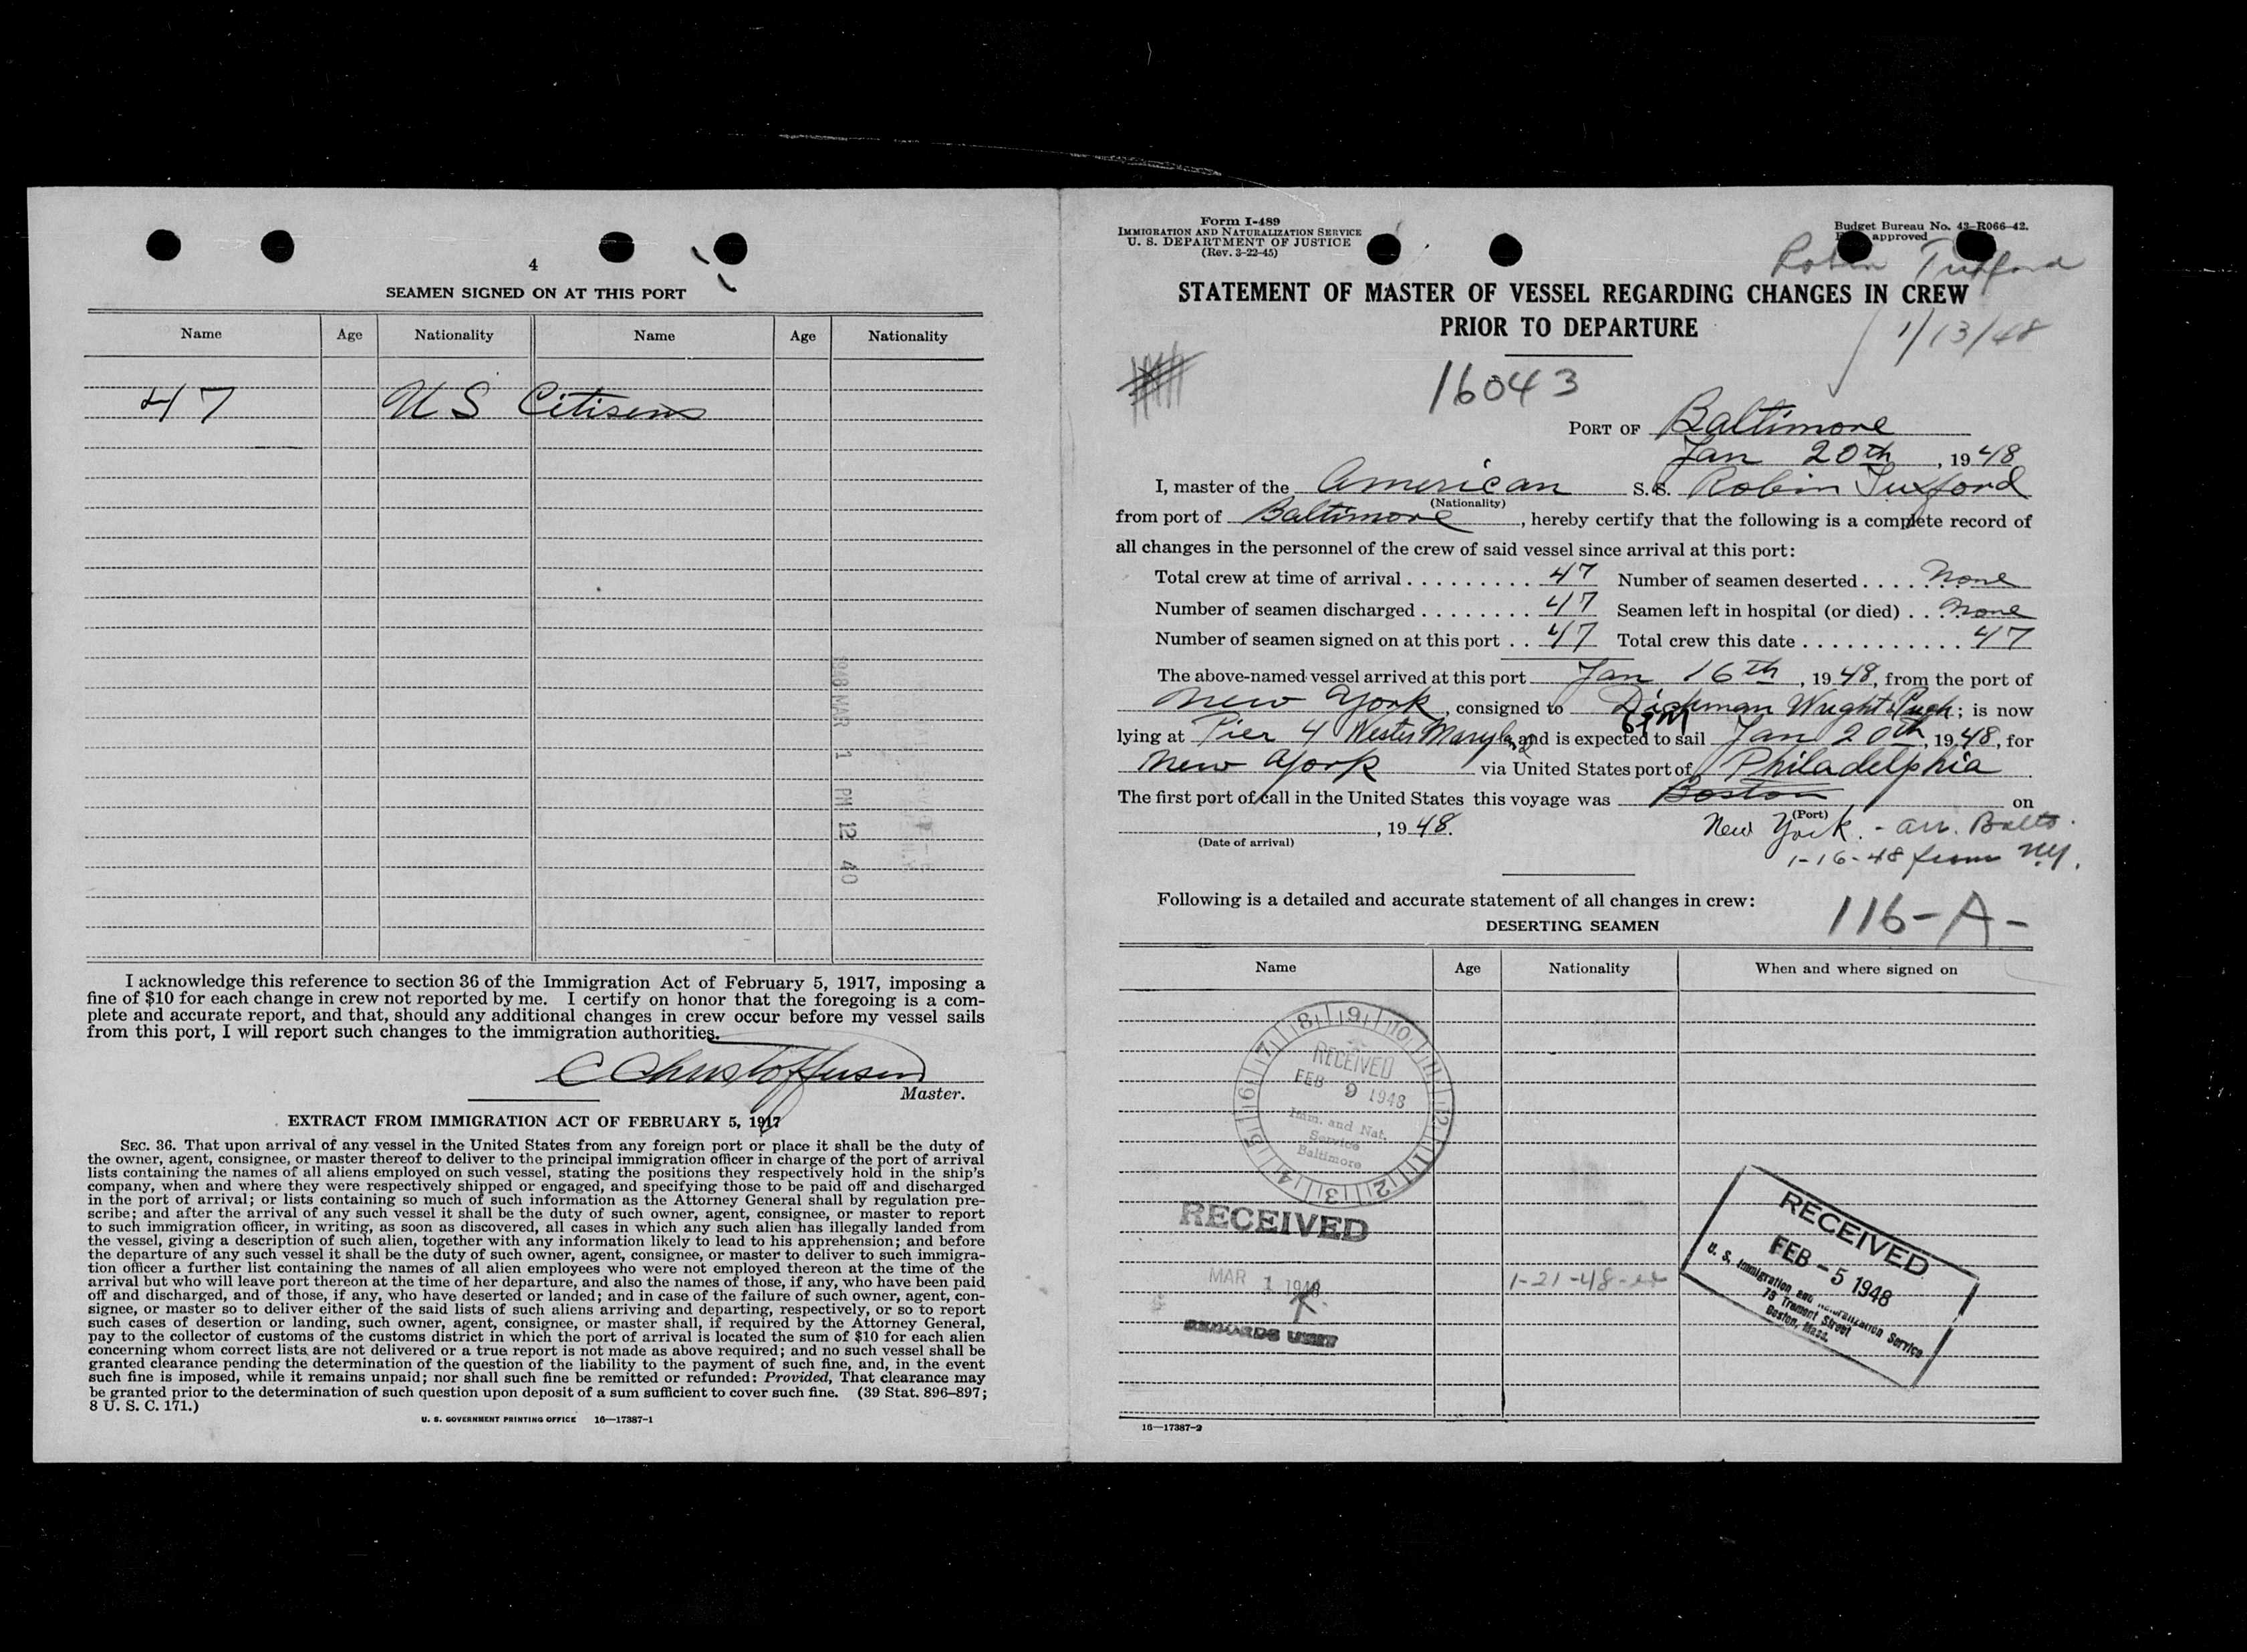 4
SEAMEN SIGNED ON AT THIS PORT
Name Age Nationality Name Age Nationality
47 US Citisens
1948 MAR 1 PM 12 40
I acknowledge this reference to section 36 of the Immigration Act of February 5, 1917, imposing a
fine of $10 for each change in crew not reported by me. I certify on honor that the foregoing is a com-
plete and accurate report, and that, should any additional changes in crew occur before my vessel sails
from this port, I will report such changes to the immigration authorities.
C Christoffersen
Master.
EXTRACT FROM IMMIGRATION ACT OF FEBRUARY 5, 1917
SEC. 36. That upon arrival of any vessel in the United States from any foreign port or place it shall be the duty of
the owner, agent, consignee, or master thereof to deliver to the principal immigration officer in charge of the port of arrival
lists containing the names of all aliens employed on such vessel, stating the positions they respectively hold in the ship's
company, when and where they were respectively shipped or engaged, and specifying those to be paid off and discharged
in the port of arrival; or lists containing so much of such information as the Attorney General shall by regulation pre-
scribe; and after the arrival of any such vessel it shall be the duty of such owner, agent, consignee, or master to report
to such immigration officer, in writing, as soon as discovered, all cases in which any such alien has illegally landed from
the vessel, giving a description of such alien, together with any information likely to lead to his apprehension; and before
the departure of any such vessel it shall be the duty of such owner, agent, consignee, or master to deliver to such immigra-
tion officer a further list containing the names of all alien employees who were not employed thereon at the time of the
arrival but who will leave port thereon at the time of her departure, and also the names of those, if any, who have been paid
off and discharged, and of those, if any, who have deserted or landed; and in case of the failure of such owner, agent, con-
signee, or master so to deliver either of the said lists of such aliens arriving and departing, respectively, or so to report
such cases of desertion or landing, such owner, agent, consignee, or master shall, if required by the Attorney General,
pay to the collector of customs of the customs district in which the port of arrival is located the sum of $10 for each alien
concerning whom correct lists are not delivered or a true report is not made as above required; and no such vessel shall be
granted clearance pending the determination of the question of the liability to the payment of such fine, and, in the event
such fine is imposed, while it remains unpaid; nor shall such fine be remitted or refunded: Provided, That clearance may
be granted prior to the determination of such question upon deposit of a sum sufficient to cover such fine. (39 Stat. 896–897;
8 U. S. C. 171.)
U. S. GOVERNMENT PRINTING OFFICE 16—17387-1
Form I-489
IMMIGRATION AND NATURALIZATION SERVICE
U. S. DEPARTMENT OF JUSTICE
(Rev. 3-22-45)
Budget Bureau No. 43-R066-42.
approved
Robin Tuxford
STATEMENT OF MASTER OF VESSEL REGARDING CHANGES IN CREW
PRIOR TO DEPARTURE
1/13/48
16043
PORT OF Baltimore
Jan 20th, 1948
I, master of the American S.S. Robin Tuxford
(Nationality)
from port of Baltimore, hereby certify that the following is a complete record of
all changes in the personnel of the crew of said vessel since arrival at this port:
Total crew at time of arrival . . . . . . . . . 47 Number of seamen deserted . . . . . none
Number of seamen discharged . . . . . . . . 47 Seamen left in hospital (or died) . . none
Number of seamen signed on at this port . . 47 Total crew this date . . . . . . . . . . . 47
The above-named vessel arrived at this port Jan 16th, 1948, from the port of
New York, consigned to Dichman Wright & Pugh; is now
6PM
lying at Pier 4 Western Maryland and is expected to sail Jan 20th, 1948, for
New York via United States port of Philadelphia.
The first port of call in the United States this voyage was Boston on
(Port)
, 1948. New York. - arr. Balto.
(Date of arrival)
1-16-48 from N.Y.
Following is a detailed and accurate statement of all changes in crew:
116-A-
DESERTING SEAMEN
Name Age Nationality When and where signed on
RECEIVED
FEB 9 1948
Imm. and Nat.
Service
Baltimore
RECEIVED
MAR 1 1948
RECORDS UNIT
1-21-48
RECEIVED
FEB - 5 1948
U. S. Immigration and Naturalization Service
73 Tremont Street
Boston, Mass.
16—17387-2